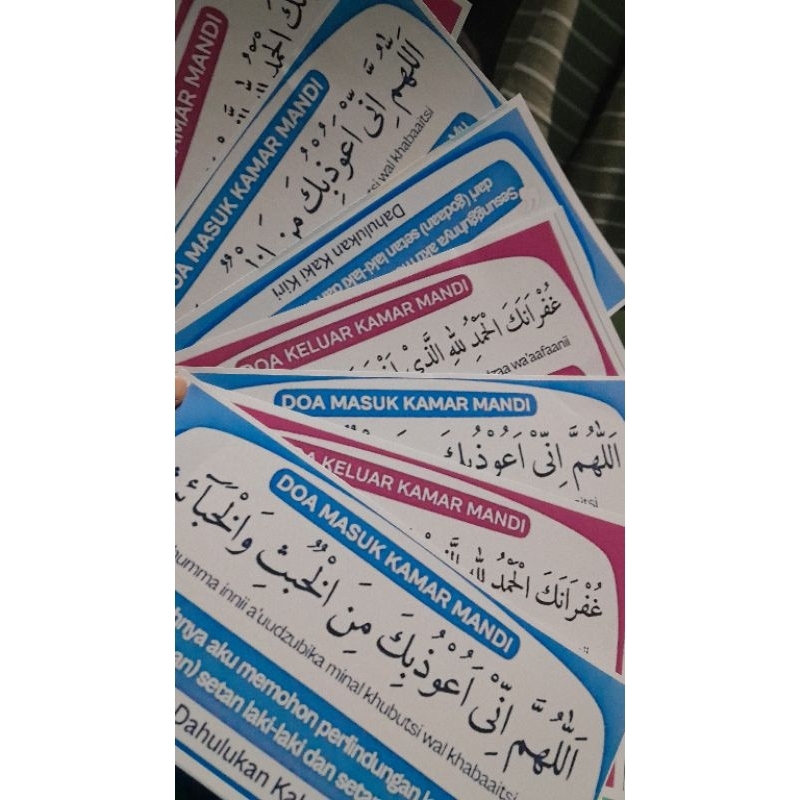 AMAR MANDI
DOA MASUK KAMAR MANDI
اَللّٰهُمَّ اِنِّىْ اَعُوْذُبِكَ مِنَ
wal khabaaitsi
Dahulukan Kaki Kiri
Sesungguhnya aku
dari (godaan) setan laki-laki dan
DOA KELUAR KAMAR MANDI
غُفْرَانَكَ الْحَمْدُ لِلّٰهِ الَّذِيْ
wa'aafaanii
DOA MASUK KAMAR MANDI
اَللّٰهُمَّ اِنِّىْ اَعُوْذُبِكَ
KELUAR KAMAR MANDI
غُفْرَانَكَ الْحَمْدُ لِلّٰهِ
DOA MASUK KAMAR MANDI
اَللّٰهُمَّ اِنِّىْ اَعُوْذُبِكَ مِنَ الْخُبُثِ وَالْخَبَآئِثِ
umma innii a'uudzubika minal khubutsi wal khabaaitsi
hnya aku memohon perlindungan
an) setan laki-laki dan setan
Dahulukan